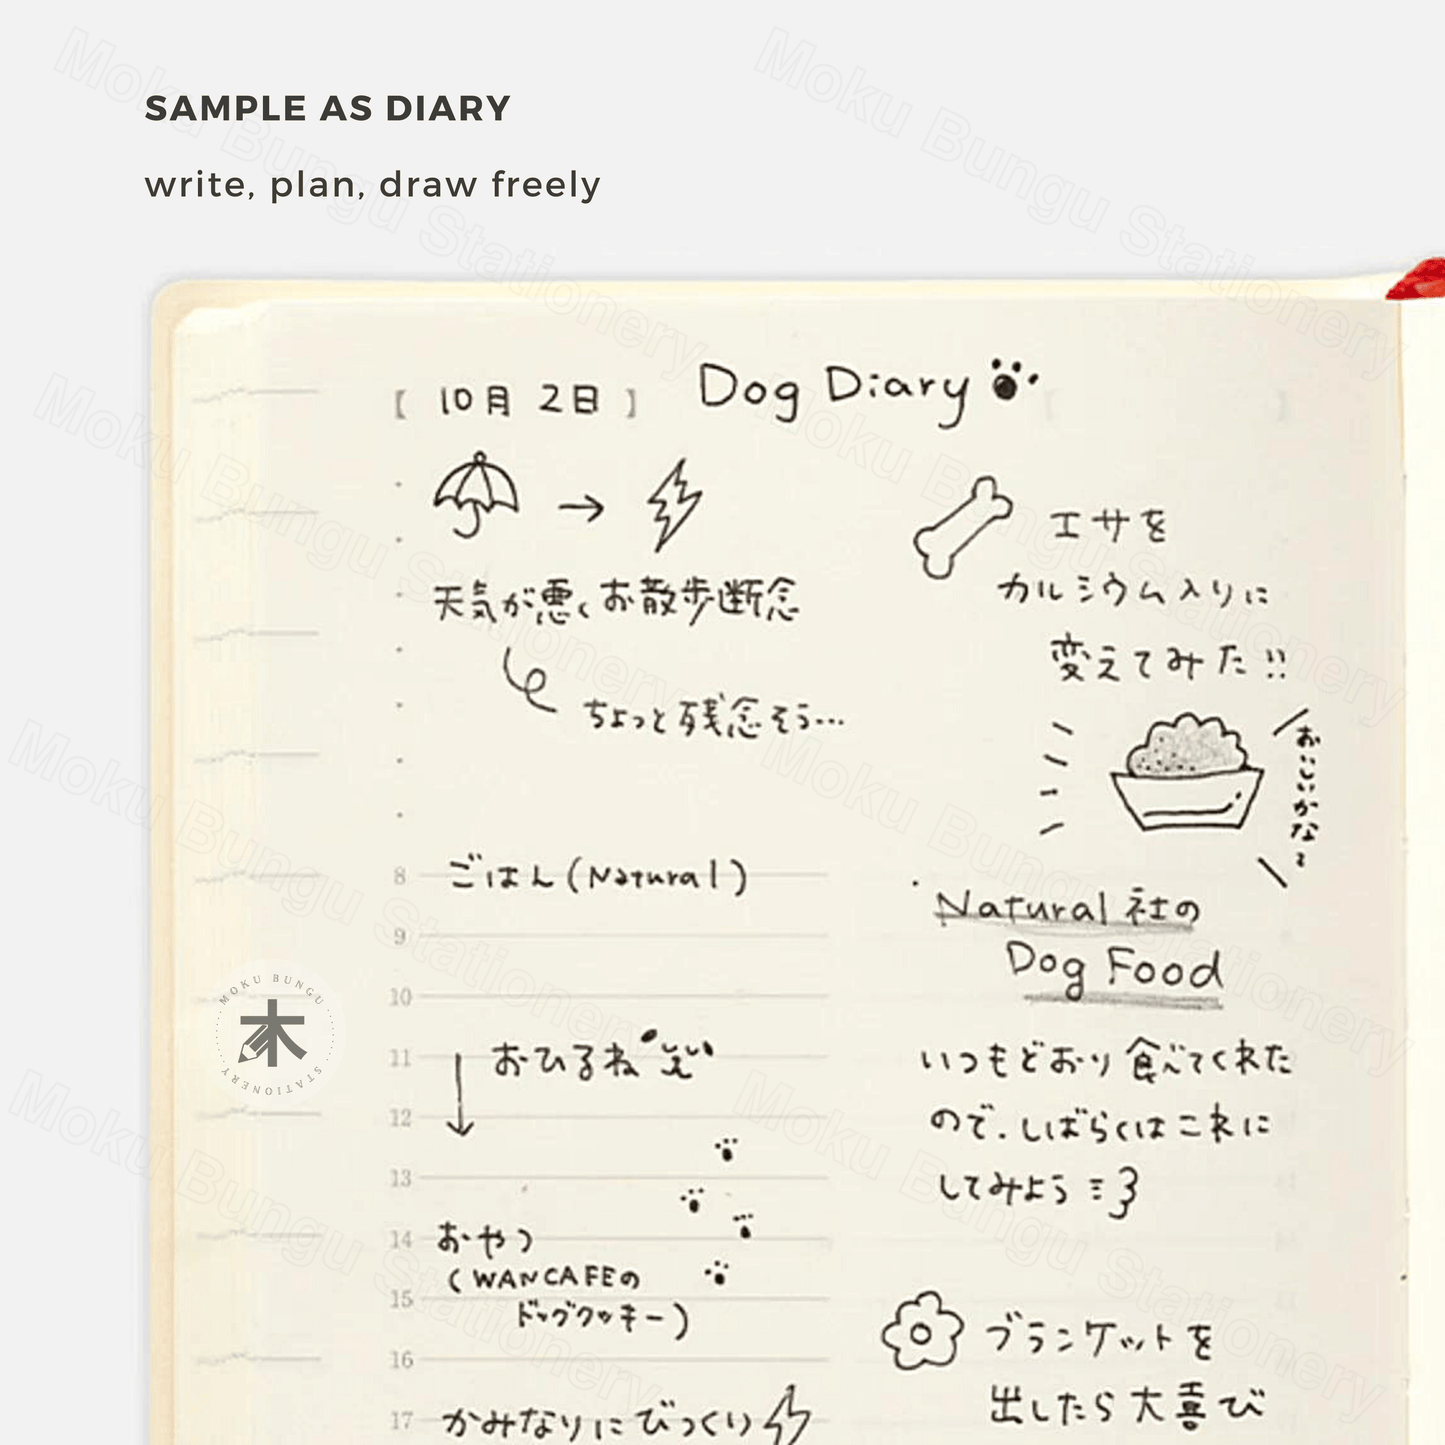 SAMPLE AS DIARY
write, plan, draw freely
[ 10月 2日 ] Dog Diary
→
天気が悪くお散歩断念
ちょっと残念そう…
エサを
カルシウム入りに
変えてみた!!
おいしいかな?
8 ごはん(Natural)
9
10
11 おひるね
12
13
14 おやつ
(WANCAFEの
15 ドッグクッキー)
16
17 かみなりにびっくり
Natural社の
Dog Food
いつもどおり食べてくれた
ので、しばらくはこれに
してみよう
ブランケットを
出したら大喜び
MOKU BUNGU
木
STATIONERY
Moku Bungu Stationery